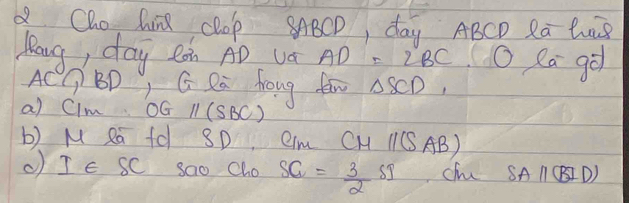 2. Cho hình chóp SABCD, đáy ABCD là hình
thang, đáy lớn AD và AD = 2BC. O là gđ
AC ∩ BD, G là trọng tâm ΔSCD.
a) C/m. OG // (SBC)
b) M là tđ SD. C/m CM // (SAB)
c) I ∈ SC sao cho SC = 3/2 SI. c/m SA // (BID)